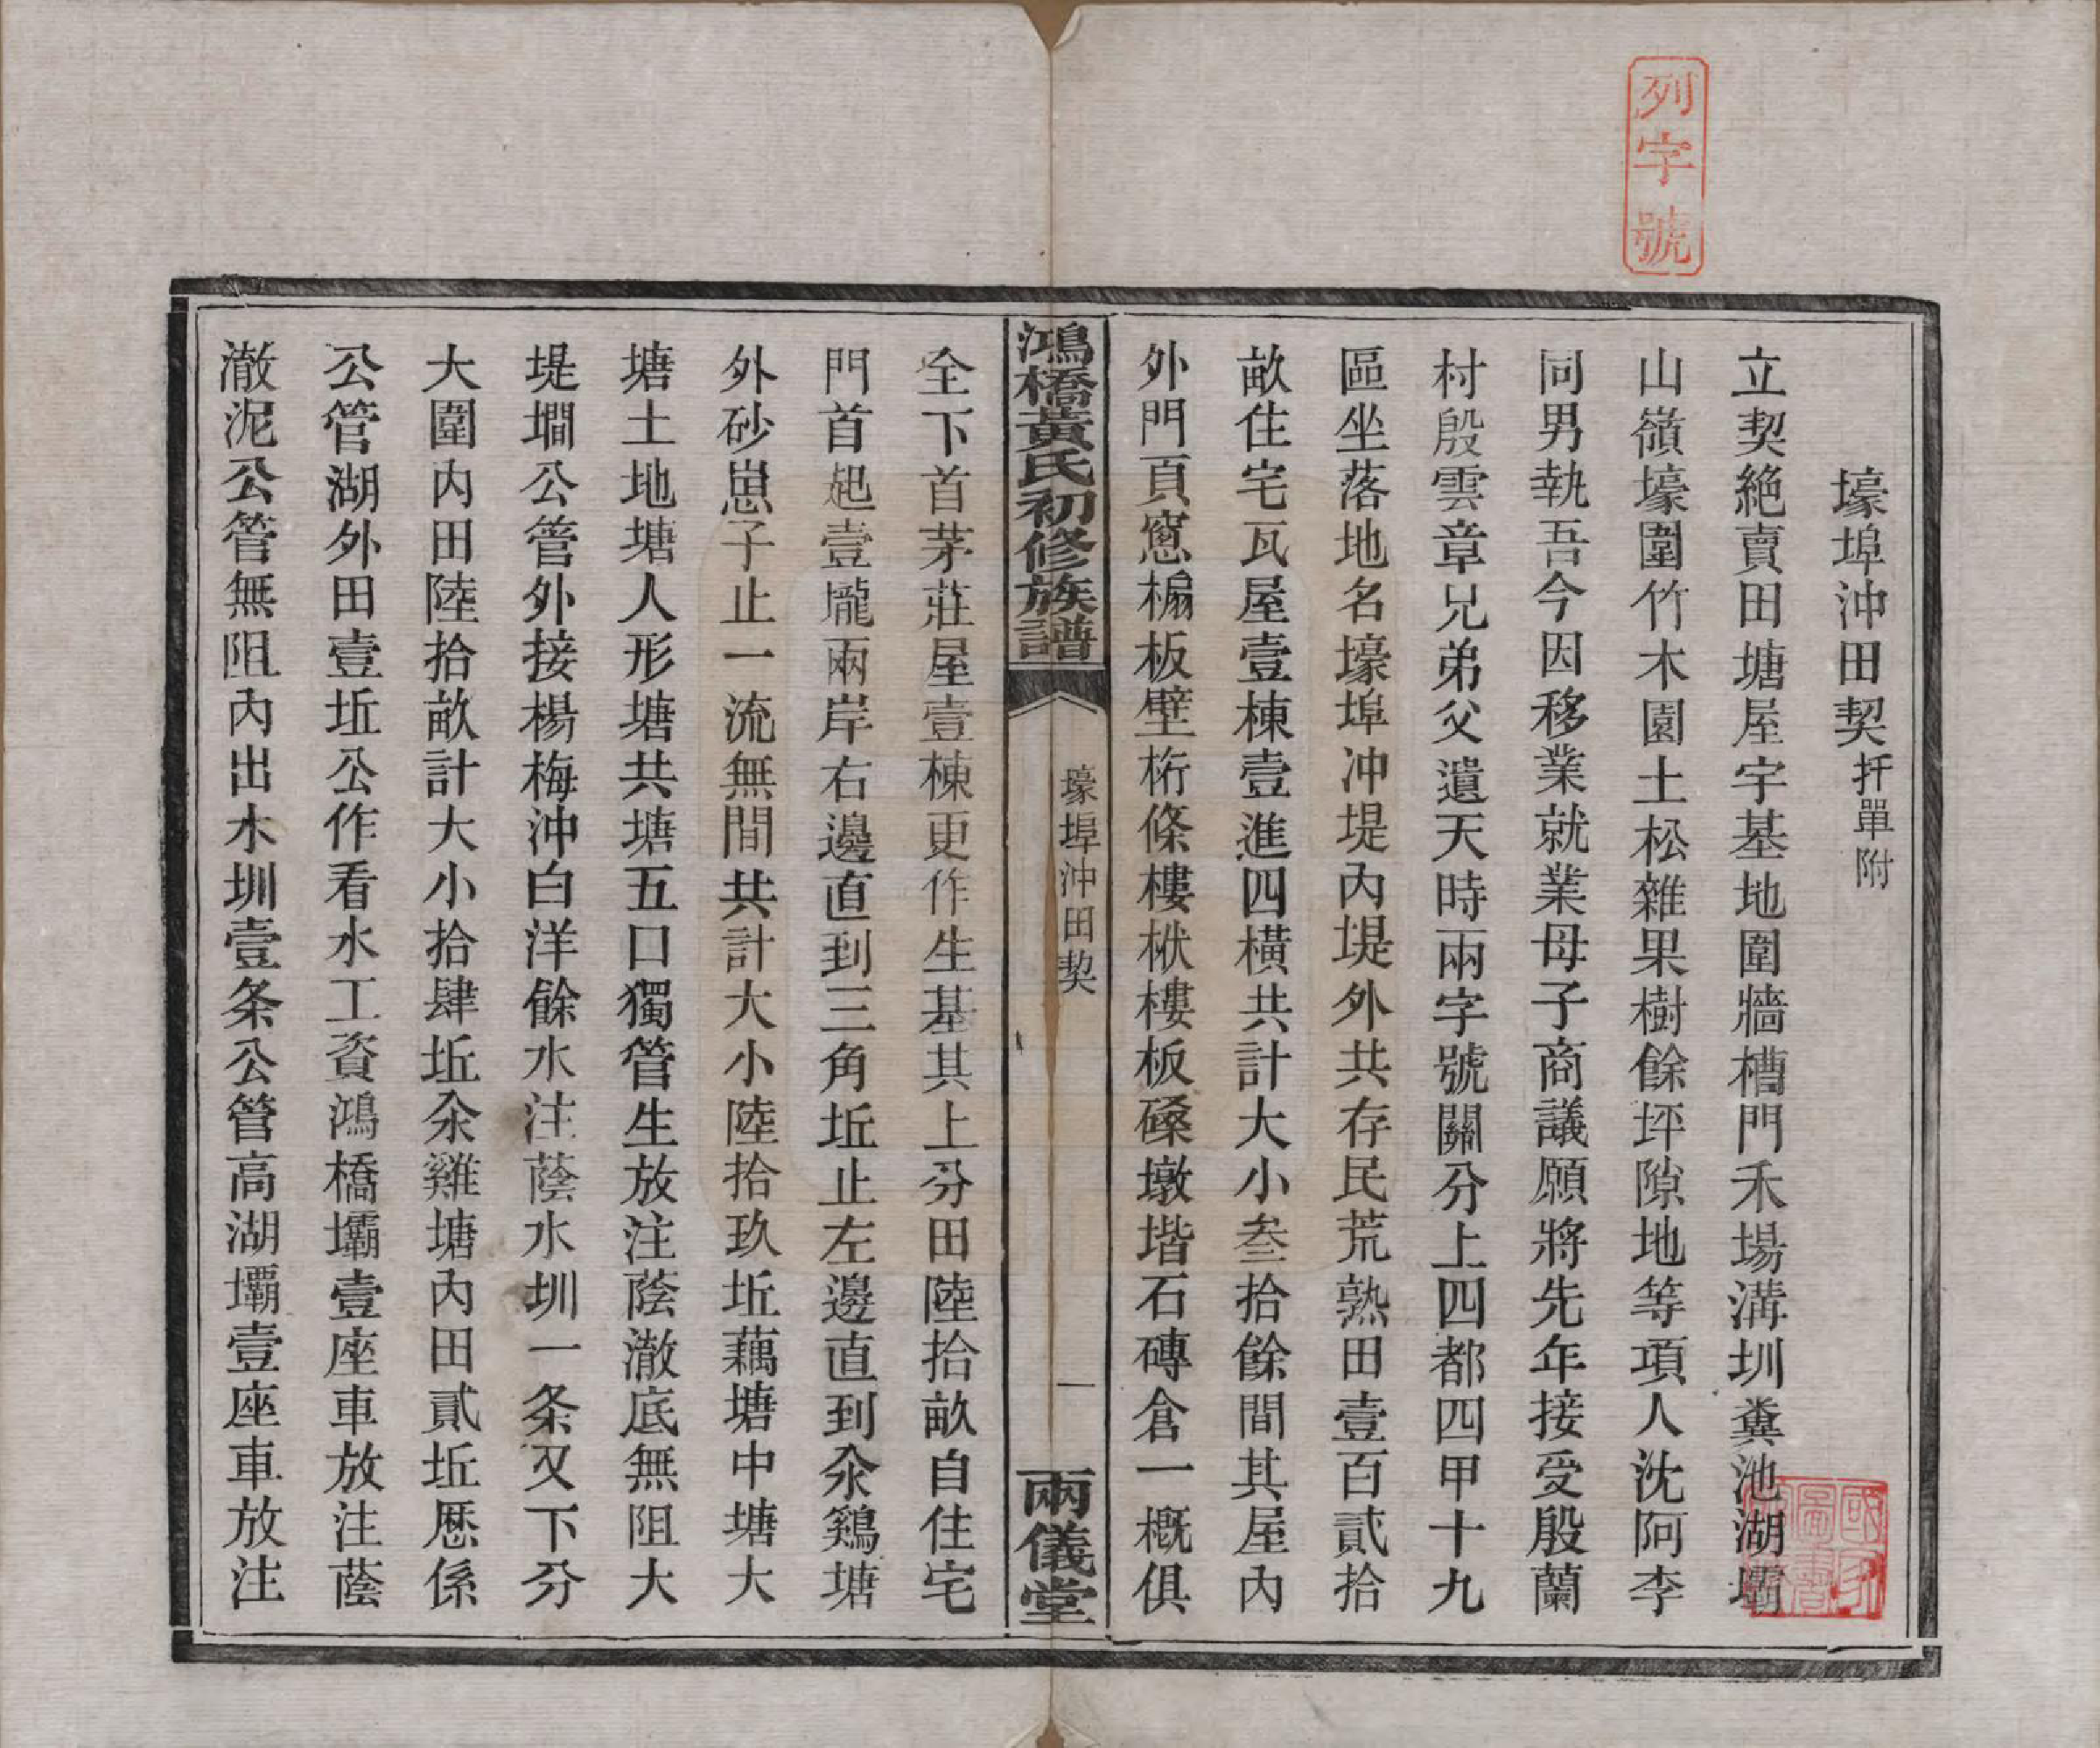 列字號
壕埠沖田契扦單附
立契絶賣田塘屋宇基地圍牆槽門禾場溝圳糞池湖壩
山嶺壕圍竹木園土松雜果樹餘坪隙地等項人沈阿李
同男執吾今因移業就業母子商議願將先年接受殷蘭
村殷雲章兄弟父遺天時兩字號關分上四都四甲十九
區坐落地名壕埠沖堤內堤外共存民荒熟田壹百貳拾
畝住宅瓦屋壹棟壹進四橫共計大小叁拾餘間其屋內
外門頁窻槅板壁桁條樓栿樓板磉墩堦石磚倉一概俱
鴻橋黃氏初修族譜
壕埠沖田契
一
兩儀堂
全下首茅莊屋壹棟更作生基其上分田陸拾畝自住宅
門首起壹壠兩岸右邊直到三角坵止左邊直到汆鷄塘
外砂崽子止一流無間共計大小陸拾玖坵藕塘中塘大
塘土地塘人形塘共塘五口獨管生放注蔭澈底無阻大
堤墹公管外接楊梅沖白洋餘水注蔭水圳一条又下分
大圍內田陸拾畝計大小拾肆坵汆雞塘內田貳坵歷係
公管湖外田壹坵公作看水工資鴻橋壩壹座車放注蔭
澈泥公管無阻內出水圳壹条公管高湖壩壹座車放注